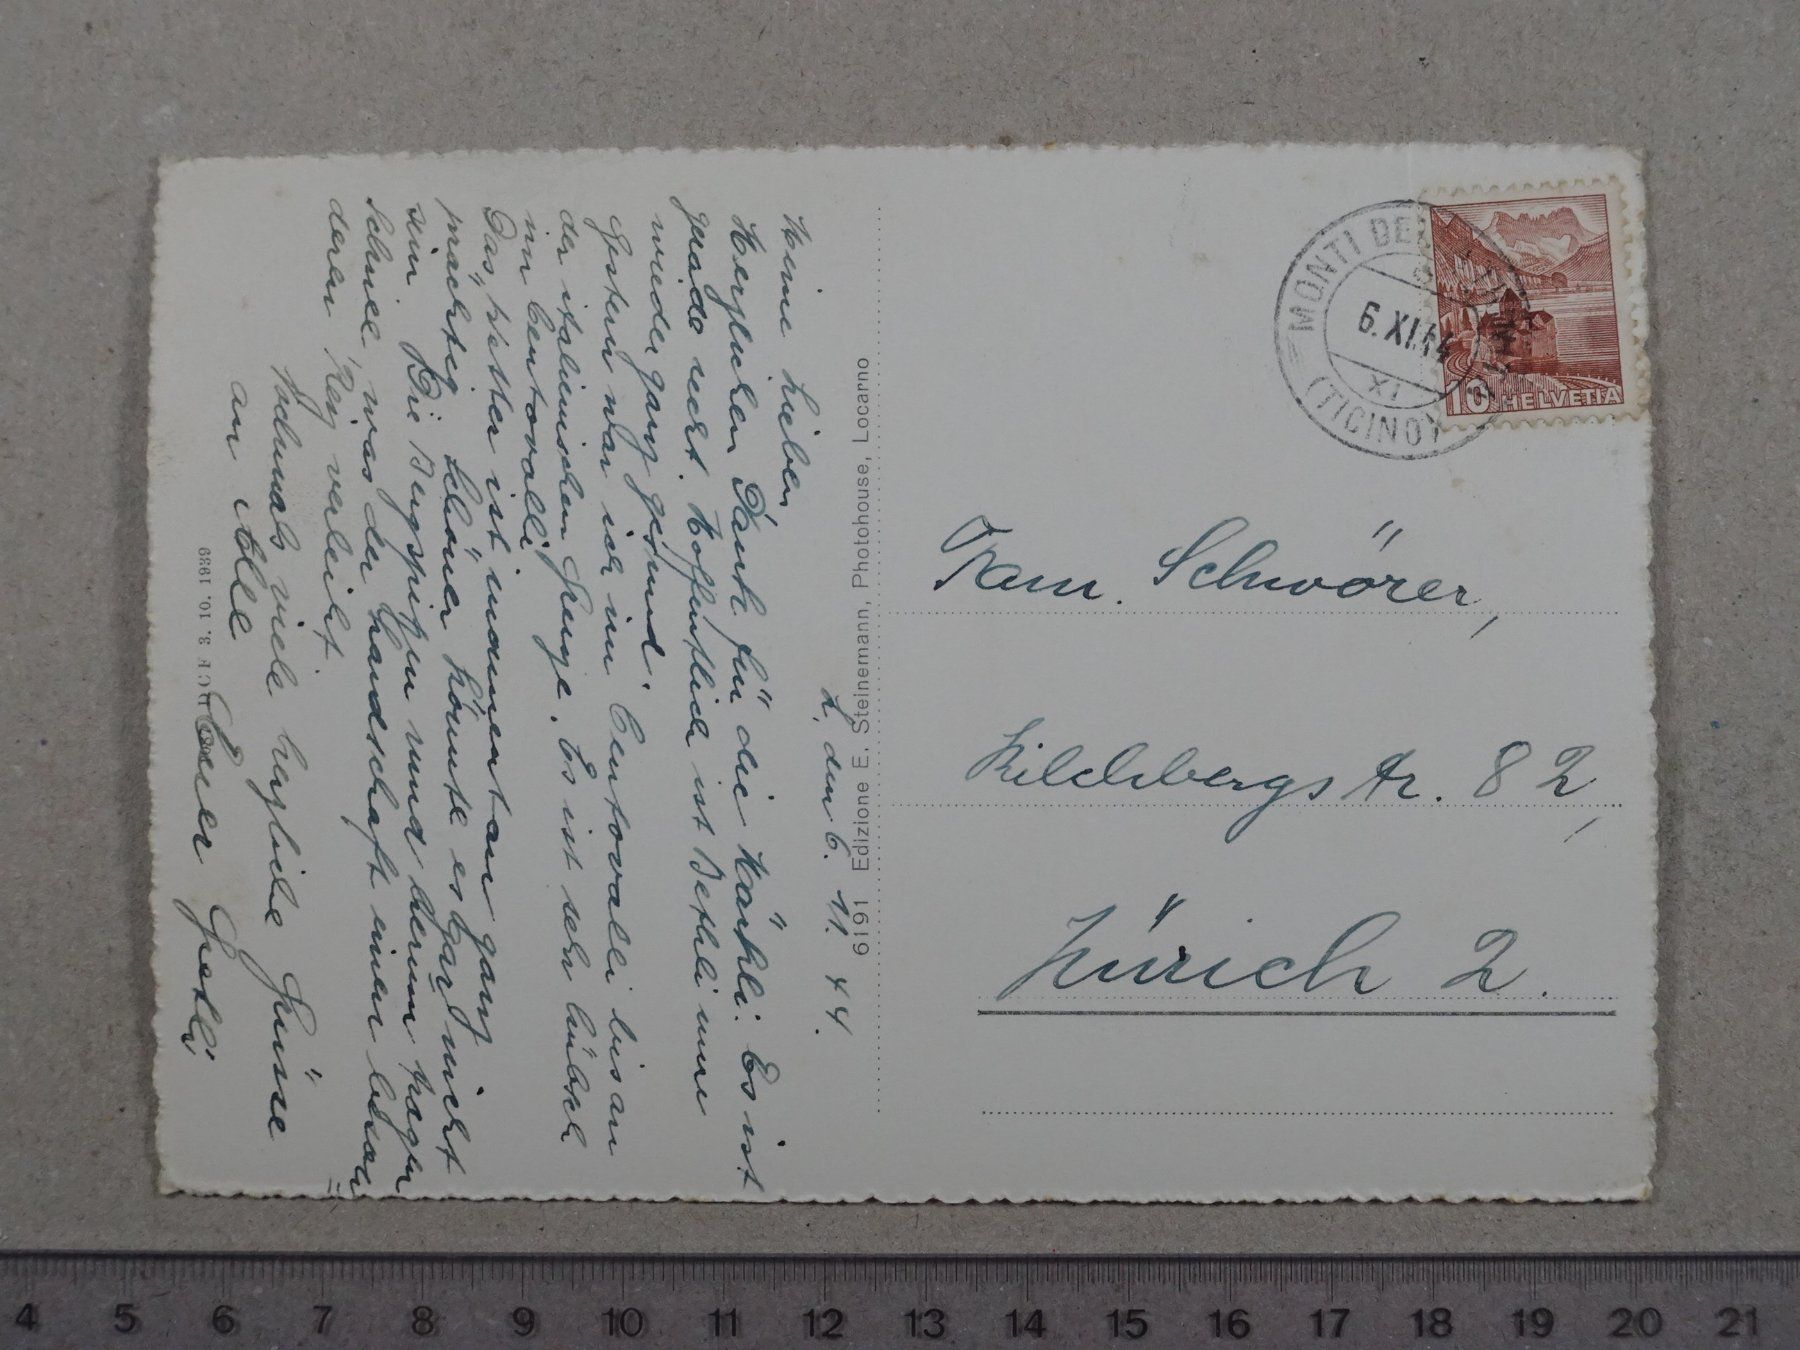 L. den 6. 11. 44.
Meine Lieben,
Herzlichen Dank für die Kärtli. Es ist
gerade recht. Hoffentlich ist Bethli nun
wieder ganz gesund.
Gestern war ich im Centovalli bis an
der italienischen Grenze. Es ist sehr hübsch
im Centovalli.
Das Wetter ist momentan ganz
prächtig, schöner könnte es gar nicht
sein. Die Bergspitzen rund herum tragen
Schnee, was der Landschaft einen beson=
deren Reiz verleiht.
Nochmals viele herzliche Grüsse
an Alle
Euer
6191 Edizione E. Steinemann, Photohouse, Locarno
3. 10. 1939
MONTI DELLA
6. XI. 44
XI
(TICINO)
10 HELVETIA
Fam. Schwörer,
Kilchbergstr. 82,
Zürich 2.
4 5 6 7 8 9 10 11 12 13 14 15 16 17 18 19 20 21